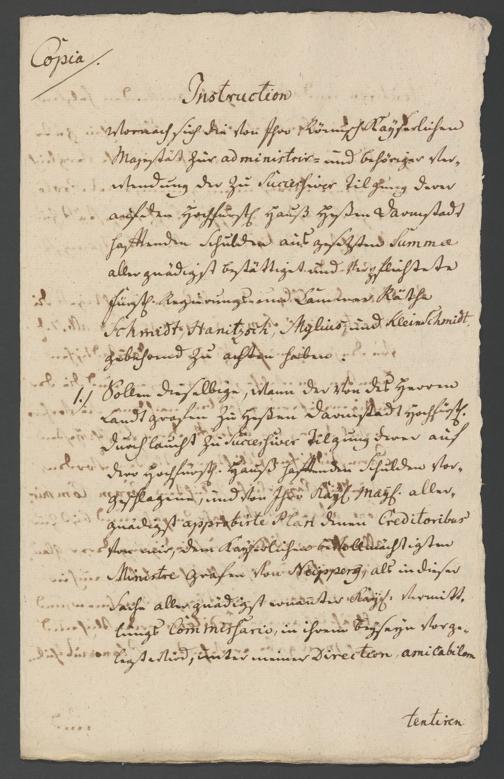 Copia /.
Instruction
Wornach sich die von Ihro Römisch Kayserlichen
Majestät zur administrir- und behöriger Ver-
wendung der zu Successiver Tilgung derer
auf dem Hochfürstl. Hauß Heßen Darmstadt
hafftenden Schulden ausgesetzten Summe
allergnädigst bestättiget und verpflichtete
Fürstl. Regierungs- und Cammer Räthe
Schmidt, Stanitzock, Mylius, und Kleinschmidt,
gebührend zu achten haben.
1./ Sollen dieselbige, wann der von des Herren
Landgrafen zu Heßen Darmstadt Hochfürstl.
Durchlaucht zu Successiver Tilgung derer auf
dero Hochfürstl. Hauß hafftenden Schulden vor-
geschlagene, und von Ihro Kayl. Mayst. aller-
gnädigst approbirte Plan denen Creditoribus
von mir, dem Kayserlichen bevollmächtigten
Ministre Grafen von Neipperg, als in dieser
Sache allergnädigst ernannter Kayl. Vermitt-
lungs Commissario, in ihrem Beyseyn vorge-
legt wird, unter meiner Direction, amicabilem
tentiren